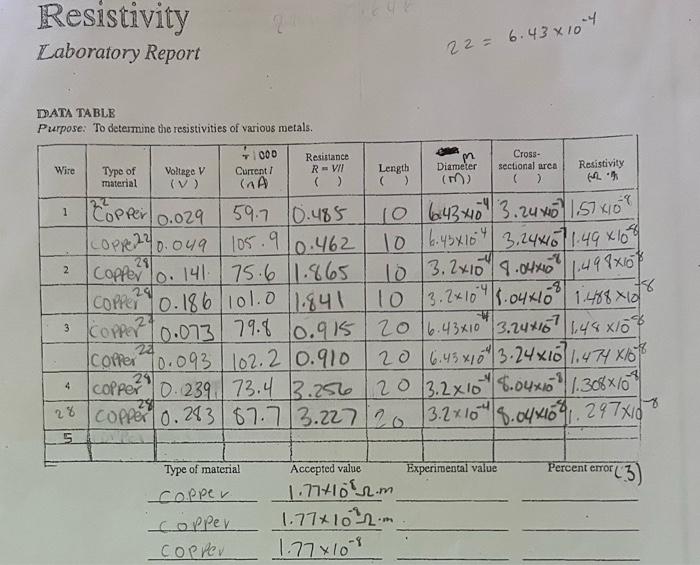 Resistivity
22 = 6.43 x 10⁻⁴
Laboratory Report
DATA TABLE
Purpose: To determine the resistivities of various metals.
Wire Type of material Voltage V (V) ÷ 1000 Current I (mA) Resistance R = V/I ( ) Length ( ) m Diameter (m) Cross-sectional area ( ) Resistivity
1 22 Copper 0.029 59.7 0.485 10 6.43x10⁻⁴ 3.24x10⁻⁷ 1.57x10⁻⁸
Copper 22 0.049 105.9 0.462 10 6.43x10⁻⁴ 3.24x10⁻⁷ 1.49x10⁻⁸
2 Copper 28 0.141 75.6 1.865 10 3.2x10⁻⁴ 8.04x10⁻⁸ 1.499x10⁻⁸
Copper 28 0.186 101.0 1.841 10 3.2x10⁻⁴ 8.04x10⁻⁸ 1.488x10⁻⁸
3 Copper 0.073 79.8 0.915 20 6.43x10⁻⁴ 3.24x10⁻⁷ 1.48x10⁻⁸
Copper 22 0.093 102.2 0.910 20 6.43x10⁻⁴ 3.24x10⁻⁷ 1.474x10⁻⁸
4 Copper 28 0.239 73.4 3.256 20 3.2x10⁻⁴ 8.04x10⁻⁸ 1.308x10⁻⁸
28 Copper 28 0.283 87.7 3.227 20 3.2x10⁻⁴ 8.04x10⁻⁸ 1.297x10⁻⁸
5
Type of material Accepted value Experimental value Percent error (3)
Copper 1.77x10⁻⁸ Ω.m
Copper 1.77x10⁻⁸ Ω.m
Copper 1.77x10⁻⁸